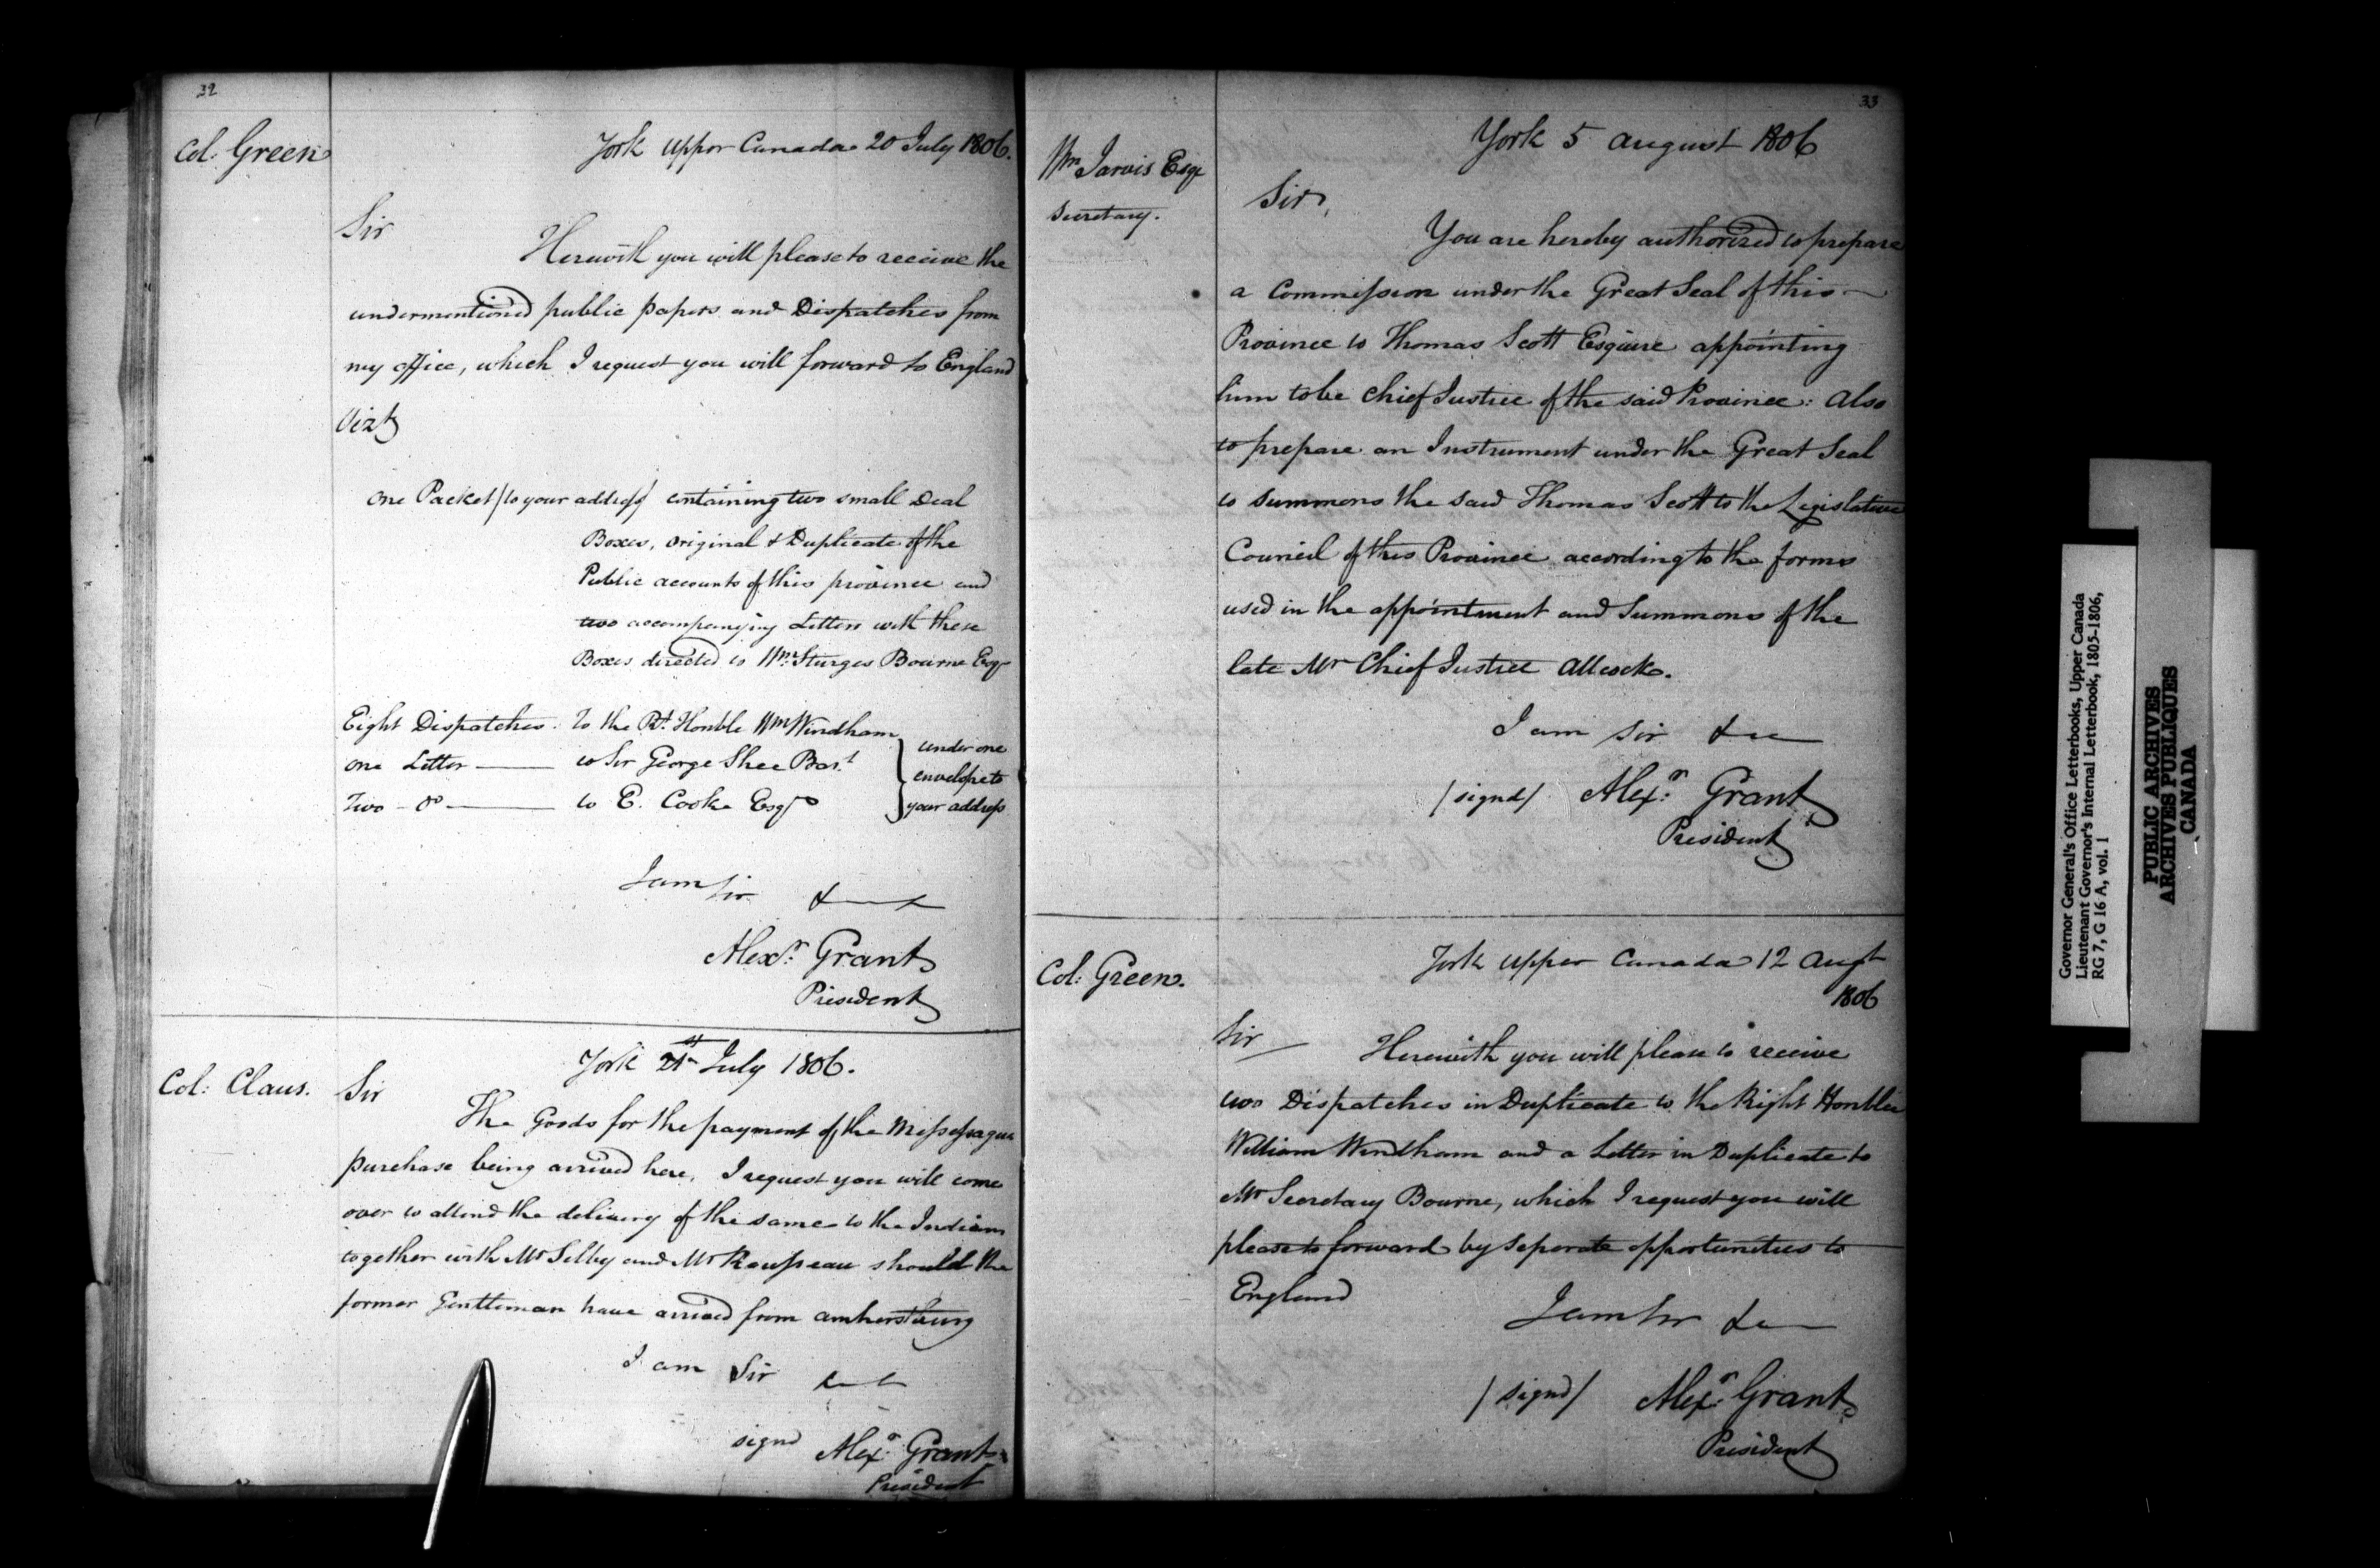 32
Col: Green
York Upper Canada 20 July 1806.
Sir
Herewith you will please to receive the
undermentioned public papers and Dispatches from
my office, which I request you will forward to England
Vizt
One Packet /to your address/ containing two small Deal
Boxes, original & Duplicate of the
Public accounts of this province and
two accompanying Letters with these
Boxes directed to Wm. Sturges Bourne Esqr
Eight Dispatches. To the Rt. Honble Wm Windham
one Letter — to Sir George Shee Bart.
Two - Do — to E. Cooke Esqre
under one
envelope to
your address
I am Sir &c
Alexr. Grant
President
Col: Claus.
York 21st July 1806.
Sir
The Goods for the payment of the Missessague
purchase being arrived here, I request you will come
over to attend the delivery of the same to the Indians
together with Mr Selby and Mr Rousseau should the
former Gentleman have arrived from Amherstburg
I am Sir &c
signd Alexr. Grant
President
33
Wm Jarvis Esqr
Secretary.
York 5 August 1806
Sir,
You are hereby authorized to prepare
a Commission under the Great Seal of this —
Province to Thomas Scott Esquire appointing
him to be Chief Justice of the said Province: Also
to prepare an Instrument under the Great Seal
to summons the said Thomas Scott to the Legislative
Council of this Province according to the forms
used in the appointment and Summons of the
late Mr Chief Justice Allcock.
I am Sir &c
/signd/ Alexr. Grant
President
Col: Green.
York Upper Canada 12 Augt
1806
Sir
Herewith you will please to receive
two Dispatches in Duplicate to the Right Honble
William Windham and a Letter in Duplicate to
Mr Secretary Bourne, which I request you will
please to forward by Seperate opportunities to
England
I am Sir &c
/signd/ Alexr. Grant
President
Governor General's Office Letterbooks, Upper Canada
Lieutenant Governor's Internal Letterbook, 1805-1806,
RG 7, G 16 A, vol. 1
PUBLIC ARCHIVES
ARCHIVES PUBLIQUES
CANADA